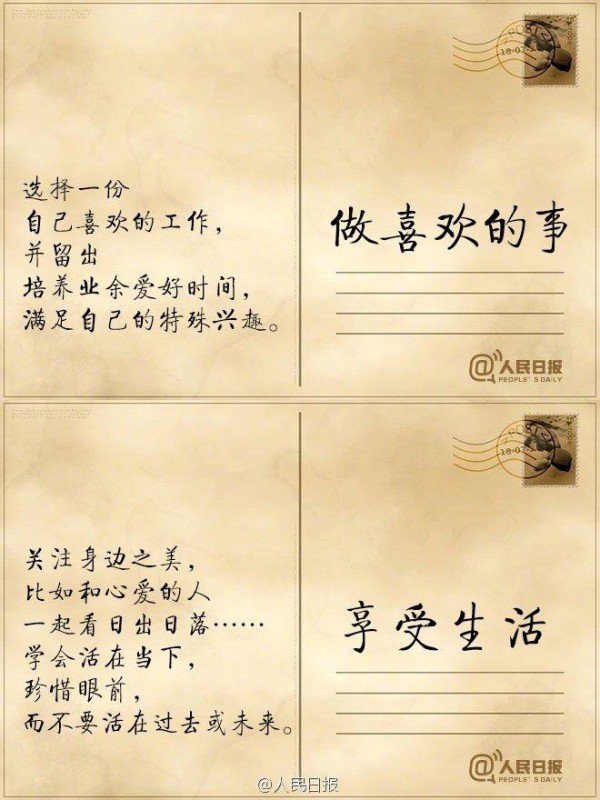 选择一份
自己喜欢的工作，
并留出
培养业余爱好时间，
满足自己的特殊兴趣。
POST
18-07
做喜欢的事
@人民日报
PEOPLE'S DAILY
关注身边之美，
比如和心爱的人
一起看日出日落……
学会活在当下，
珍惜眼前，
而不要活在过去或未来。
POST
18-07
享受生活
@人民日报
PEOPLE'S DAILY
@人民日报